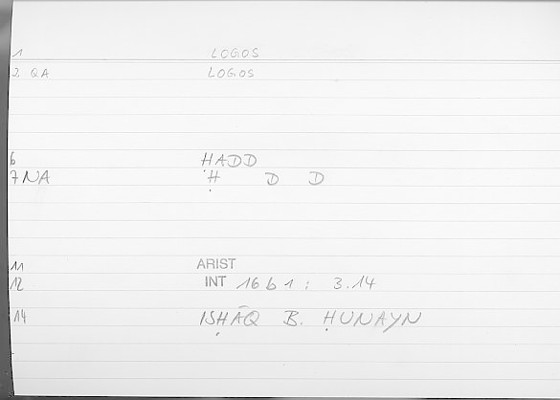 1 LOGOS
2. QA LOGOS
6 ḤADD
7 NA Ḥ D D
11 ARIST
12 INT 16 b 1 : 3.14
14 ISḤĀQ B. ḤUNAYN